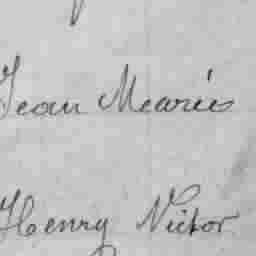 Jean Mearie
Henry Victor